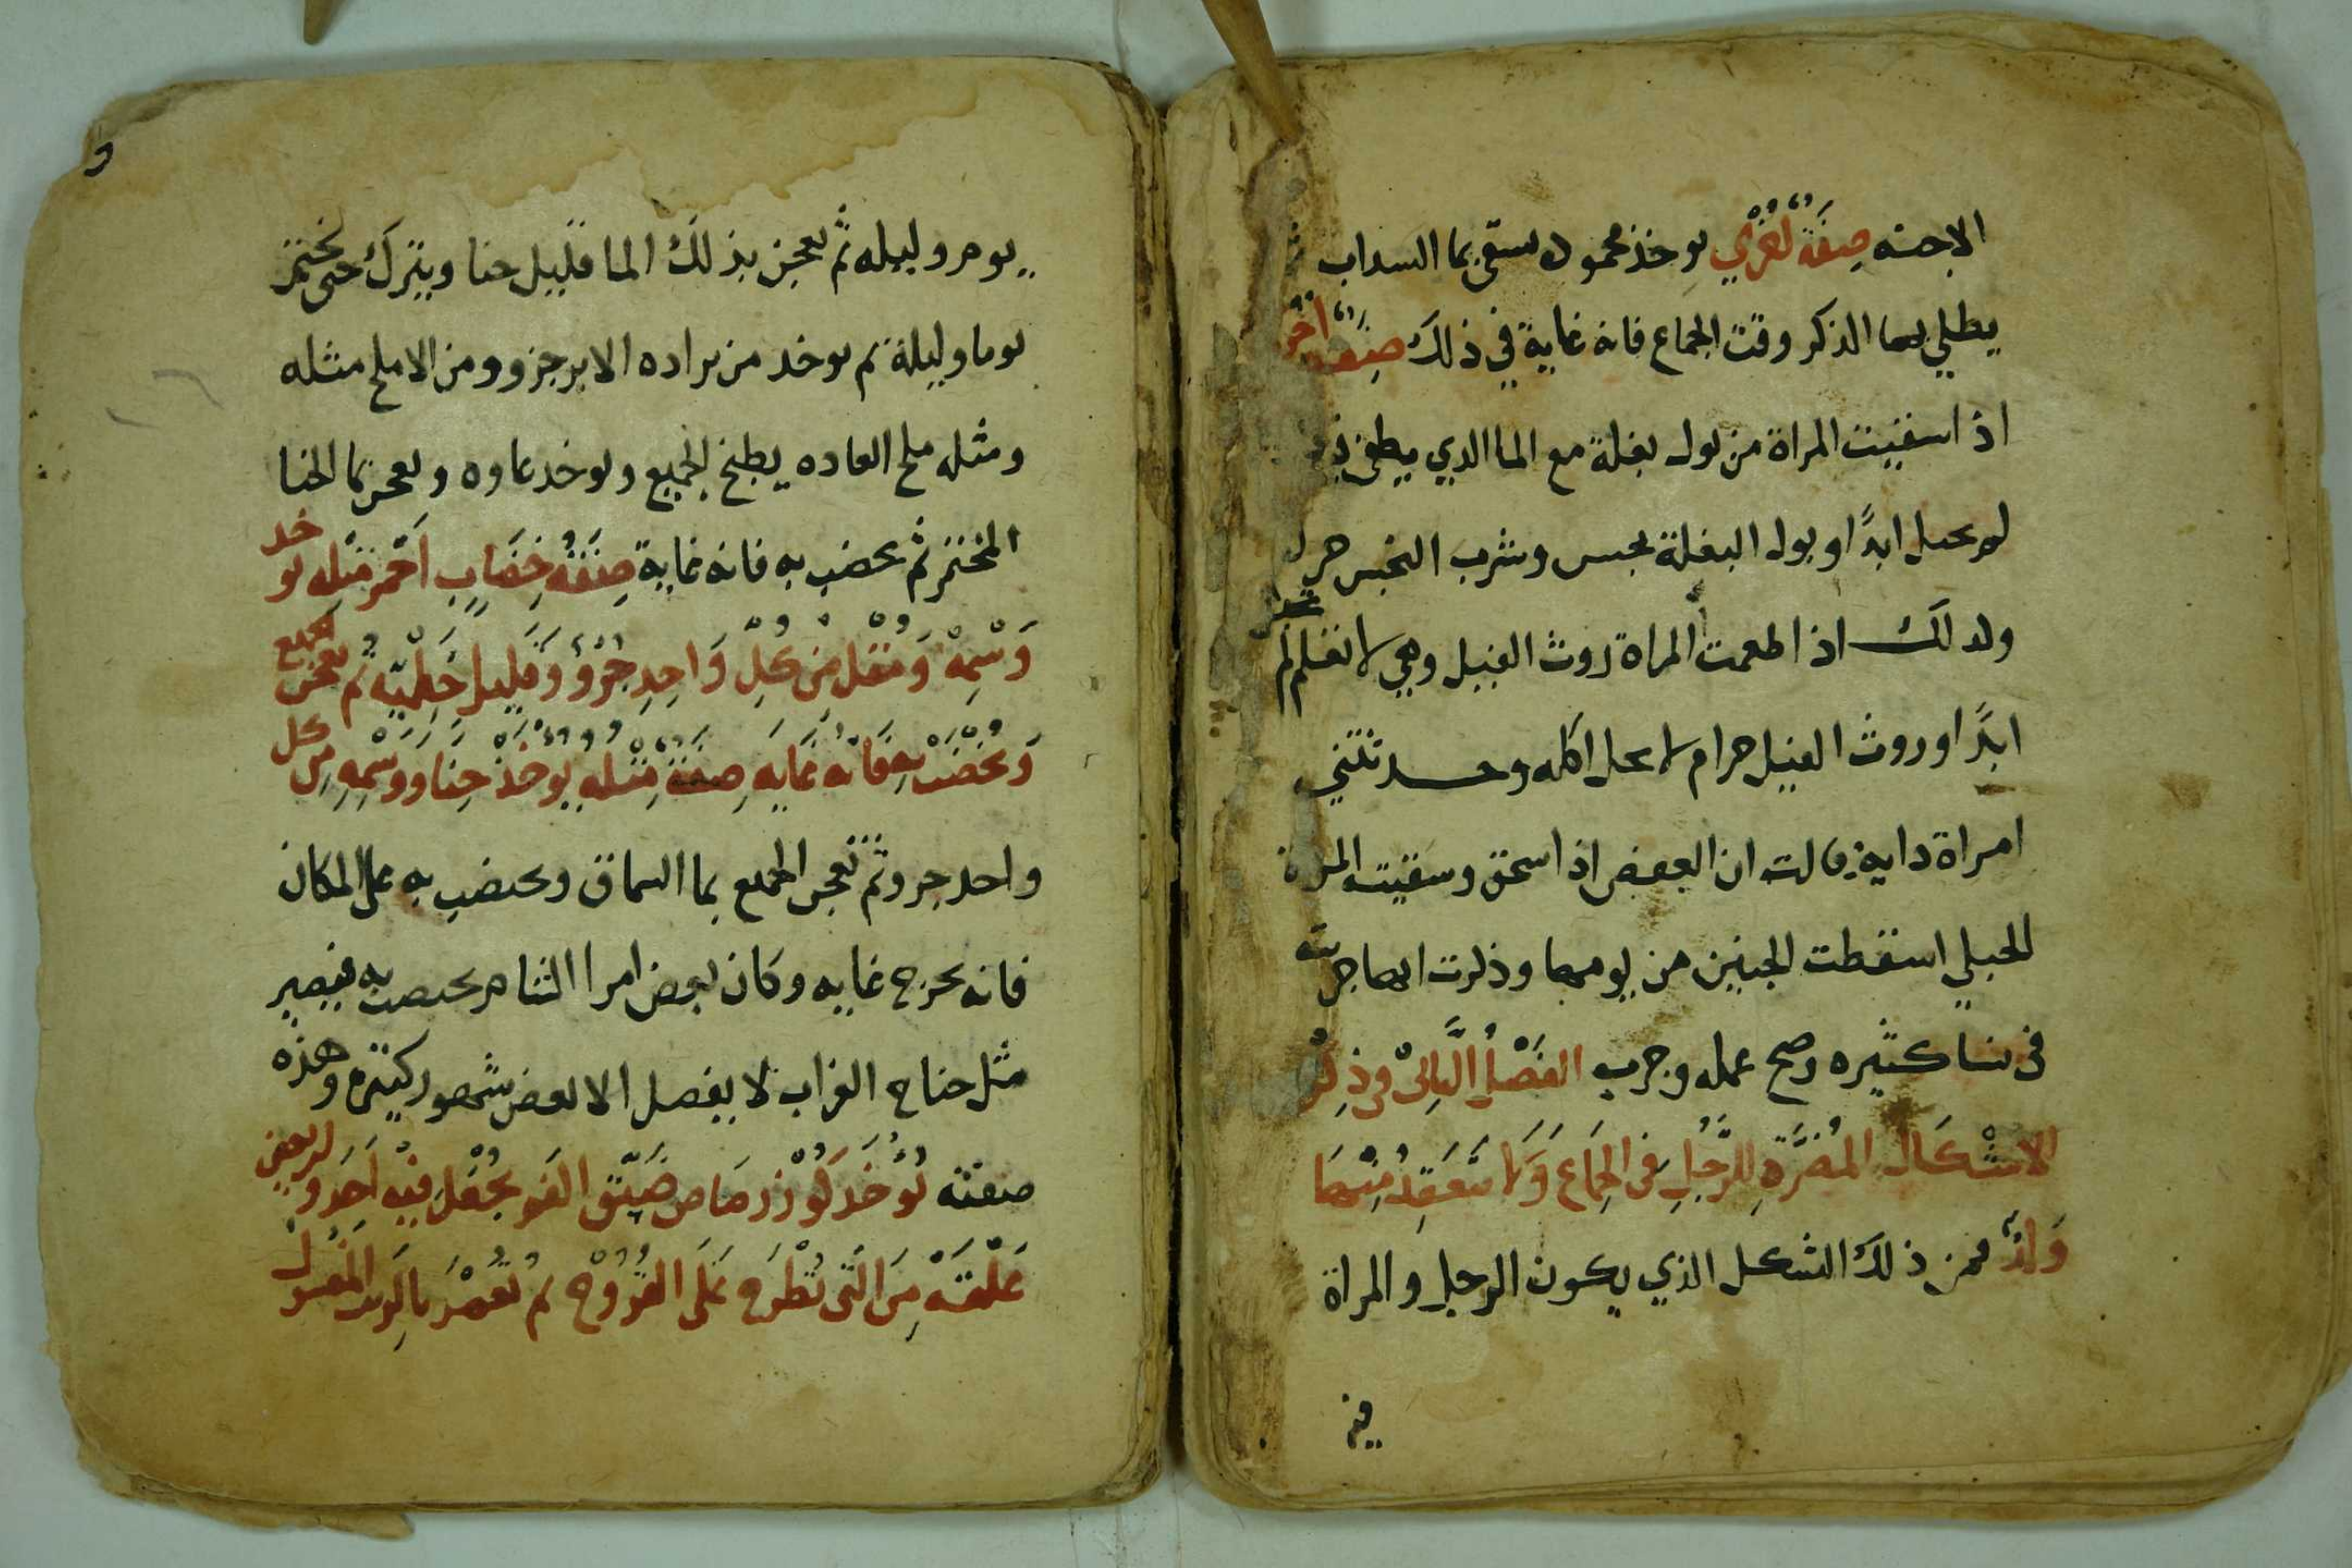 الاجنه صِفَةٌ اخري يوخذ محموده يسقى بما السداب
يطلي بها الذكر وقت الجماع فانه غاية في ذلك صفة اخرى
اذ اسقيت المراة من بول بغلة مع الما الدي يطفى
لم يحبل ابدًا وبول البغلة نجس وشرب النجس حرا
وكدلك اذ اطعمت المراة روث الفيل وهي لا تعلم لم تحبل
ابدًا وروث الفيل حرام لا يحل اكله وحدتتني
امراة داية قالت ان العفص اذ اسحق وسقيته المراة
الحبلي اسقطت الجنين من يومها وذكرت انها جربته
في نسا كثيره وصح عمله وجرب الفَصْلُ الثَّالِثْ في ذِكْر
الاشْكَال المُضرَّةِ للرَّجُلِ في الجِمَاع وَلا ينعَقِدُ مِنْهَا
وَلدٌ فمن ذلك الشكل الذي يكون الرجل والمراة
فيه
يوم وليله ثم يعجن بذلك الما قليل حنا ويترك حتى يختمر
يوما وليلة ثم يوخد من براده الابر جزو ومن الاملح مثله
ومثله ملح العاده يطبخ الجميع ويوخد ماوه ويعجن بما الحنا
المختمر ثم يخضب به فانه غاية صِفَةُ خِضَابٍ احْمَر مثله يوخد
وَسْمِهْ وَمُقْل مِن كُلِّ وَاحِدٍ جُزْؤٌ وَقَلِيل خَطميّه ثم يعجن الجميع
وَيُخْضَبْ بِهِ فَانّه غَايَه صِفَةٌ مِثْلُهِ يُوخَذْ حِنَا وَوَسْمِهِ مِن كل
واحد جزو ثم تعجن الجميع بما السماق ويخضب به على المكان
فانه يخرج غايه وكان بعض امرا الشام يخضب به فيصير
مثل جناح الغراب لا يفصل الا بعض شهور كثيره وهذه
صفته يُوخَد كُوْز رصَاص ضَيّق الفَم يُجْعَل فيْه احَد واربعين
عَلَقَهْ مِنَ الّتى تُطْرَح عَلى القُرُوح ثم تُغْمَرَ بالزيت المغسول